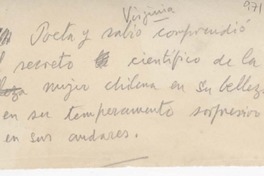 Virginia
971
Poeta y sabio comprendió
secreto científico de la
mujer chilena en su belleza
en su temperamento sorpresivo
en sus andares.